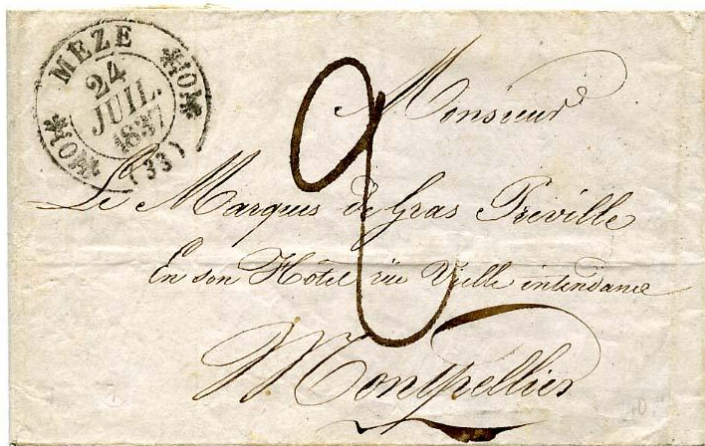 MEZE
24
JUIL.
1837
(33)
2
Monsieur
Le Marquis de Gras Preville
En son Hotel rue Vielle intendance
Montpellier